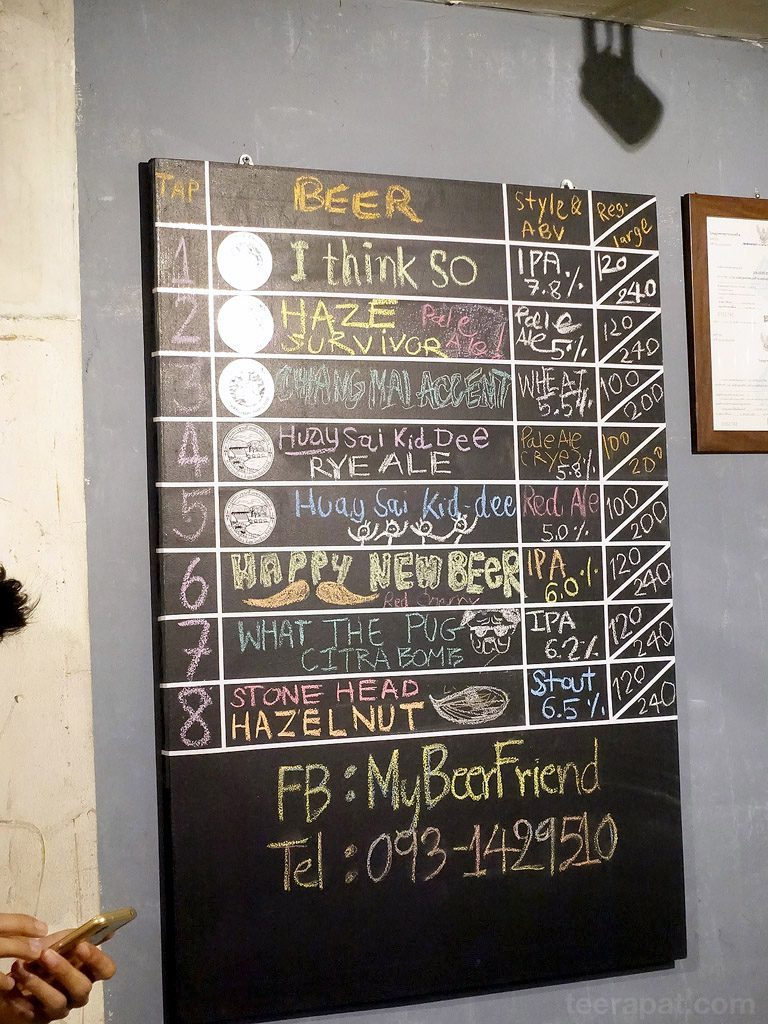 TAP BEER Style & ABV Reg. large
1 I think so IPA 7.8% 120 240
2 HAZE SURVIVOR Pale Ale! Pale Ale 5% 120 240
3 CHIANG MAI ACCENT WHEAT 5.5% 100 200
4 Huay Sai Kid Dee RYE ALE Pale Ale 5.8% 100 200
5 Huay Sai Kid-dee Red Ale 5.0% 100 200
6 HAPPY NEW BEER Red IPA 6.0% 120 240
7 WHAT THE PUG CITRA BOMB IPA 6.2% 120 240
8 STONE HEAD HAZELNUT Stout 6.5% 120 240
FB : MyBeerFriend
Tel : 093-1429510
teerapat.com